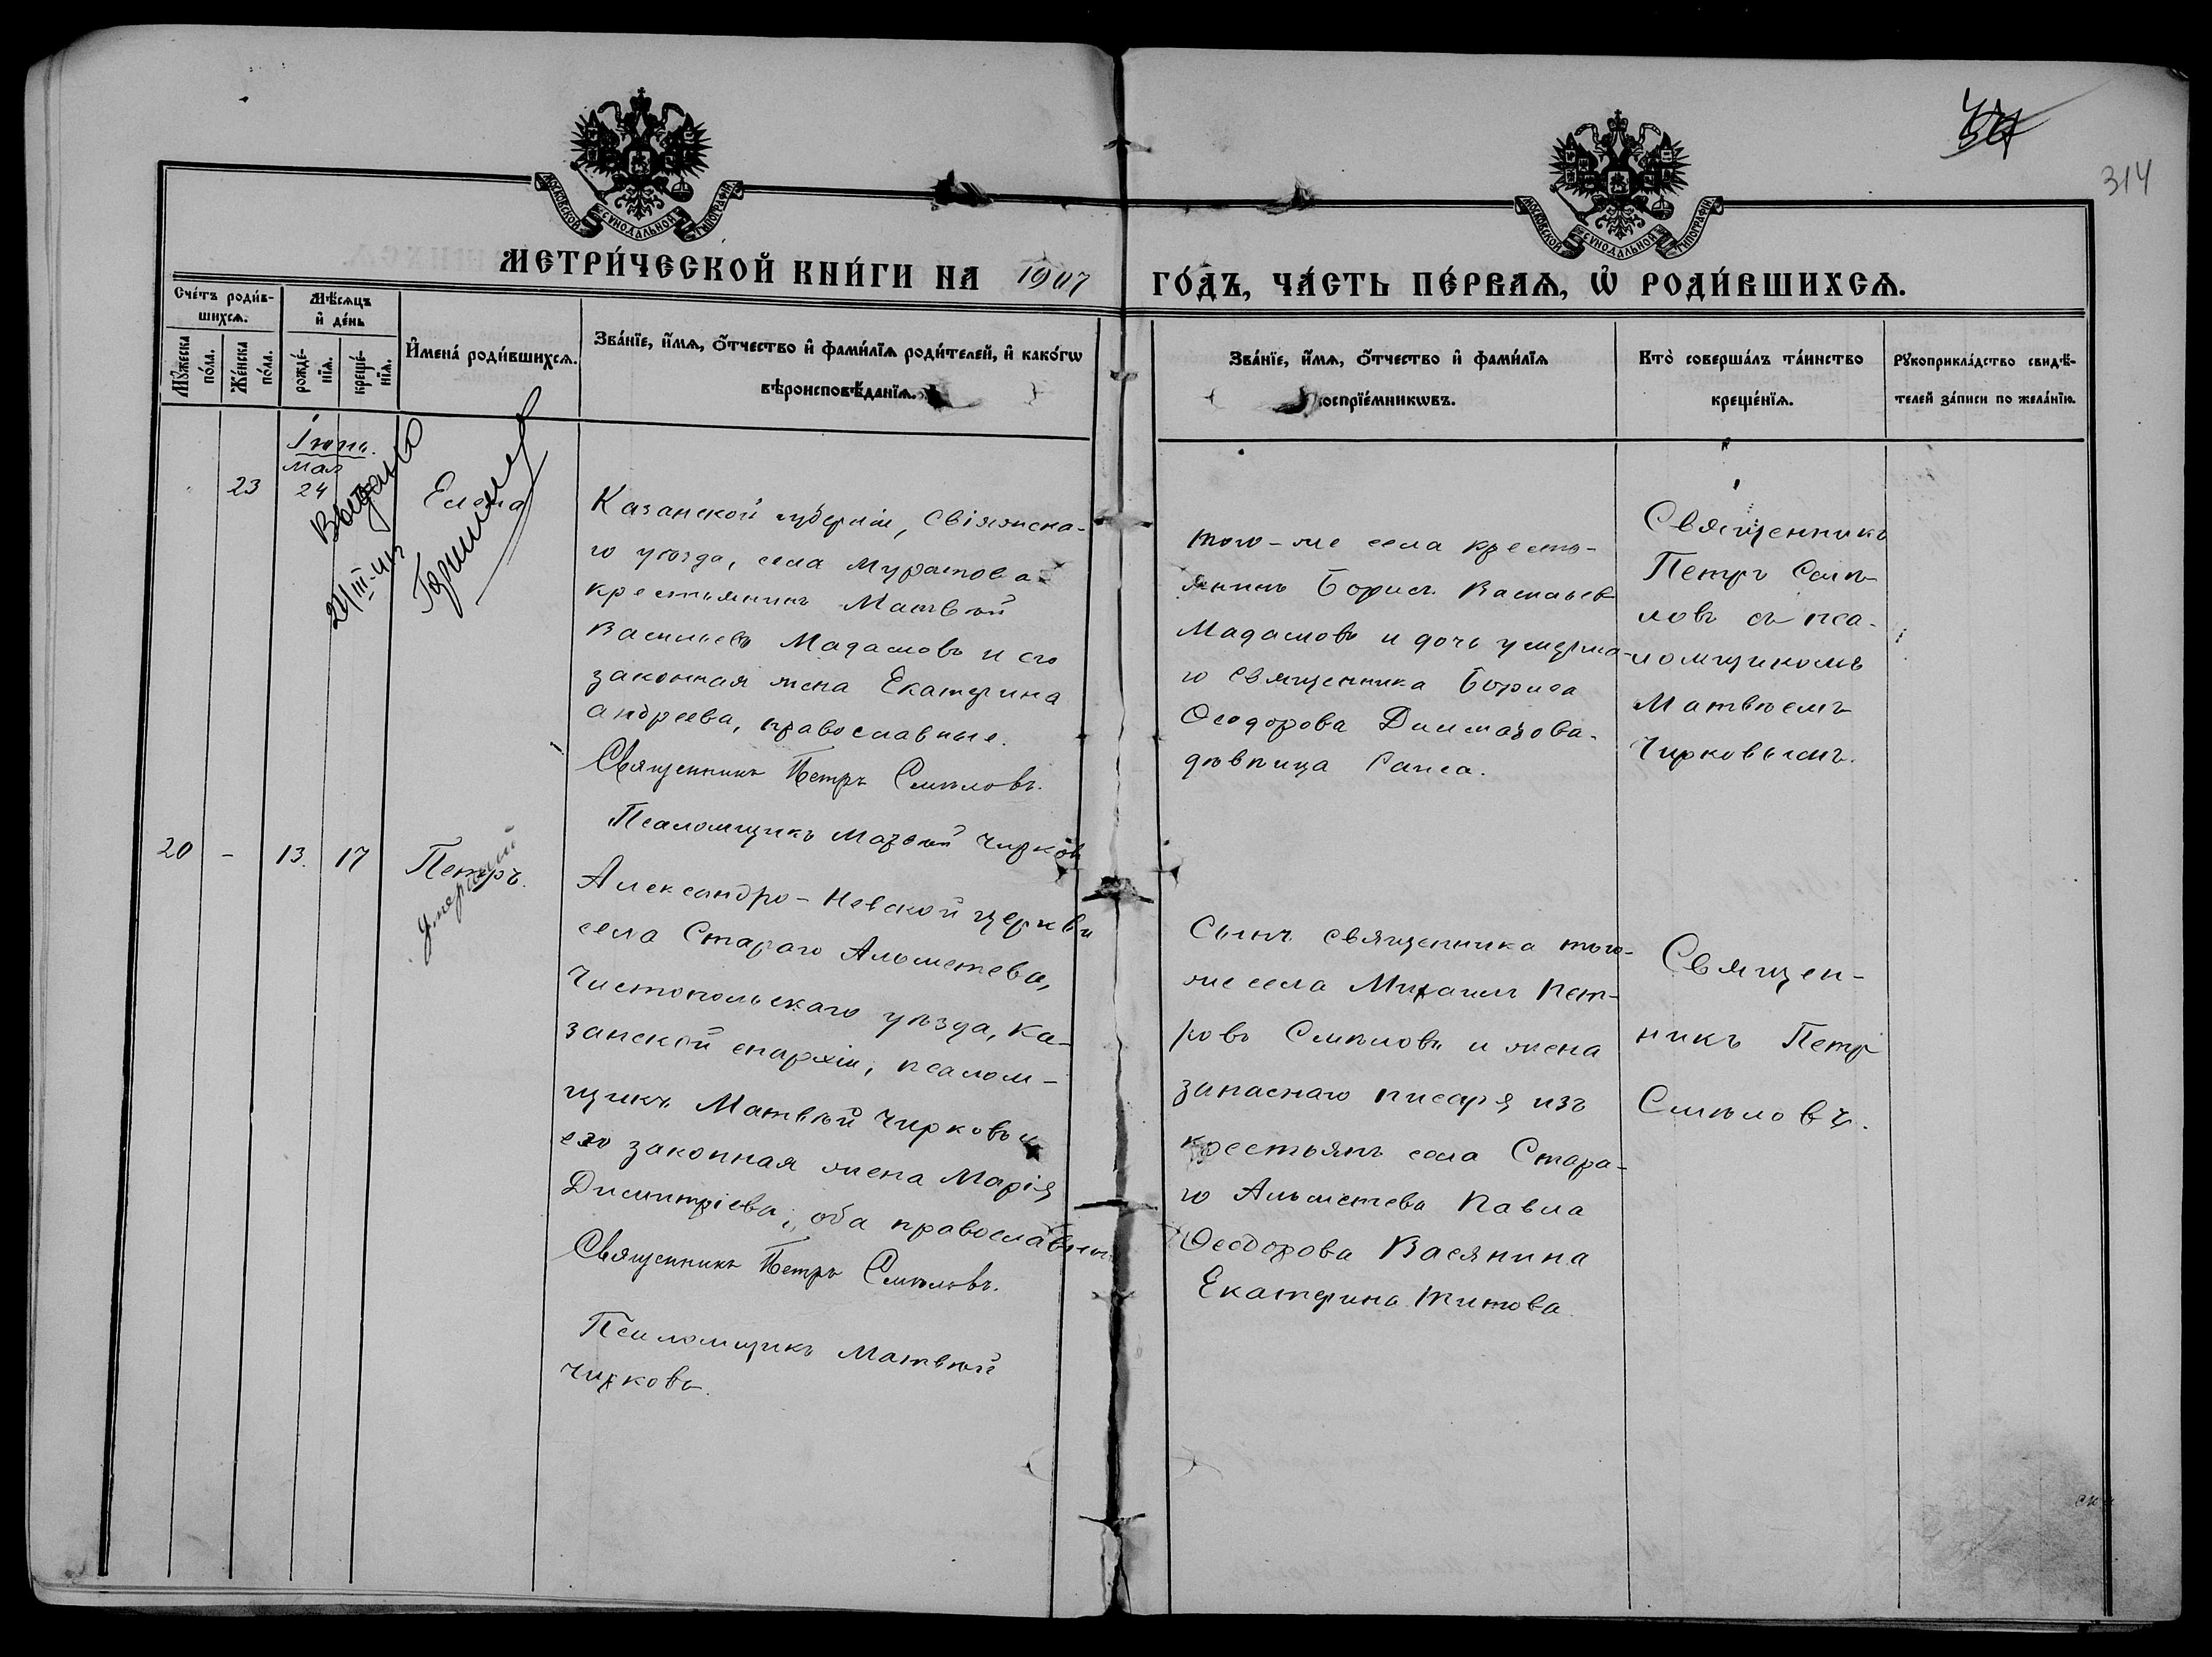 314
МОСКОВСКОЙ СУНОДАЛЬНОЙ ТИПОГРАФІИ
МОСКОВСКОЙ СУНОДАЛЬНОЙ ТИПОГРАФІИ
МЕТРИ́ЧЕСКОЙ КНИ́ГИ НА 1907 ГО́ДЪ, ЧА́СТЬ ПЕ́РВАѦ, Ѽ РОДИ́ВШИХСѦ.
Сче́тъ роди́в-
шихсѧ.
Мꙋ́жеска по́ла.
Же́нска по́ла.
Мѣ́сѧцъ
и҆ де́нь
рожде́-
нїѧ.
креще́-
нїѧ.
И҆мена̀ роди́вшихсѧ.
Зва́нїе, и҆́мѧ, ѻ҆́тчество и҆ фами́лїѧ роди́телей, и҆ како́гѡ
вѣроисповѣ́данїѧ.
Зва́нїе, и҆́мѧ, ѻ҆́тчество и҆ фами́лїѧ
воспрїе́мникѡвъ.
Кто̀ соверша́лъ та́инство
креще́нїѧ.
Рꙋкоприкла́дство свидѣ́-
телей за́писи по жела́нїю.
Іюнь.
мая
23
24
Выдано
Елена
Казанской губерніи, Свіяжска-
го уѣзда, села Муратова
крестьянинъ Матвѣй
Васильевъ Мадамовъ и его
законная жена Екатерина
Андреева, православные.
Священникъ Петръ Смѣловъ.
Псаломщикъ Матвѣй Чирковъ
того-же села кресть-
янинъ Борисъ Васильев
Мадамовъ и дочь умерша-
го священника Бориса
Ѳеодорова
дѣвица Раиса.
Священникъ
Петръ Смѣ-
ловъ съ пса-
ломщикомъ
Матвѣемъ
Чирковымъ.
20 - 13. 17
Петръ.
умершій
Александро-Невской церкви
села Стараго Альметева,
Чистопольскаго уѣзда, Ка-
занской епархіи, псалом-
щикъ Матвѣй Чирковъ и
его законная жена Марія
Димитріева, оба православные.
Священникъ Петръ Смѣловъ.
Псаломщикъ Матвѣй
Чирковъ.
Сынъ священника того-
же села Михаилъ Пет-
ровъ Смѣловъ и жена
запаснаго писаря изъ
крестьянъ села Стара-
го Альметева Павла
Ѳеодорова Васянина
Екатерина Титова.
Священ-
никъ Петръ
Смѣловъ.